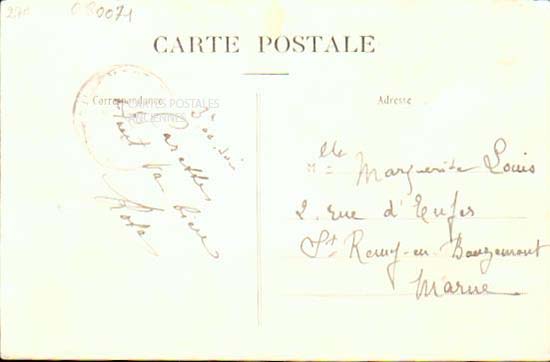 270
CARTE POSTALE
Correspondance
CARTES POSTALES
ANCIENNES
Tout va bien
Adresse
Mlle Marguerite Louis
2. rue d'Enfer
St Remy-en-Bouzemont
Marne